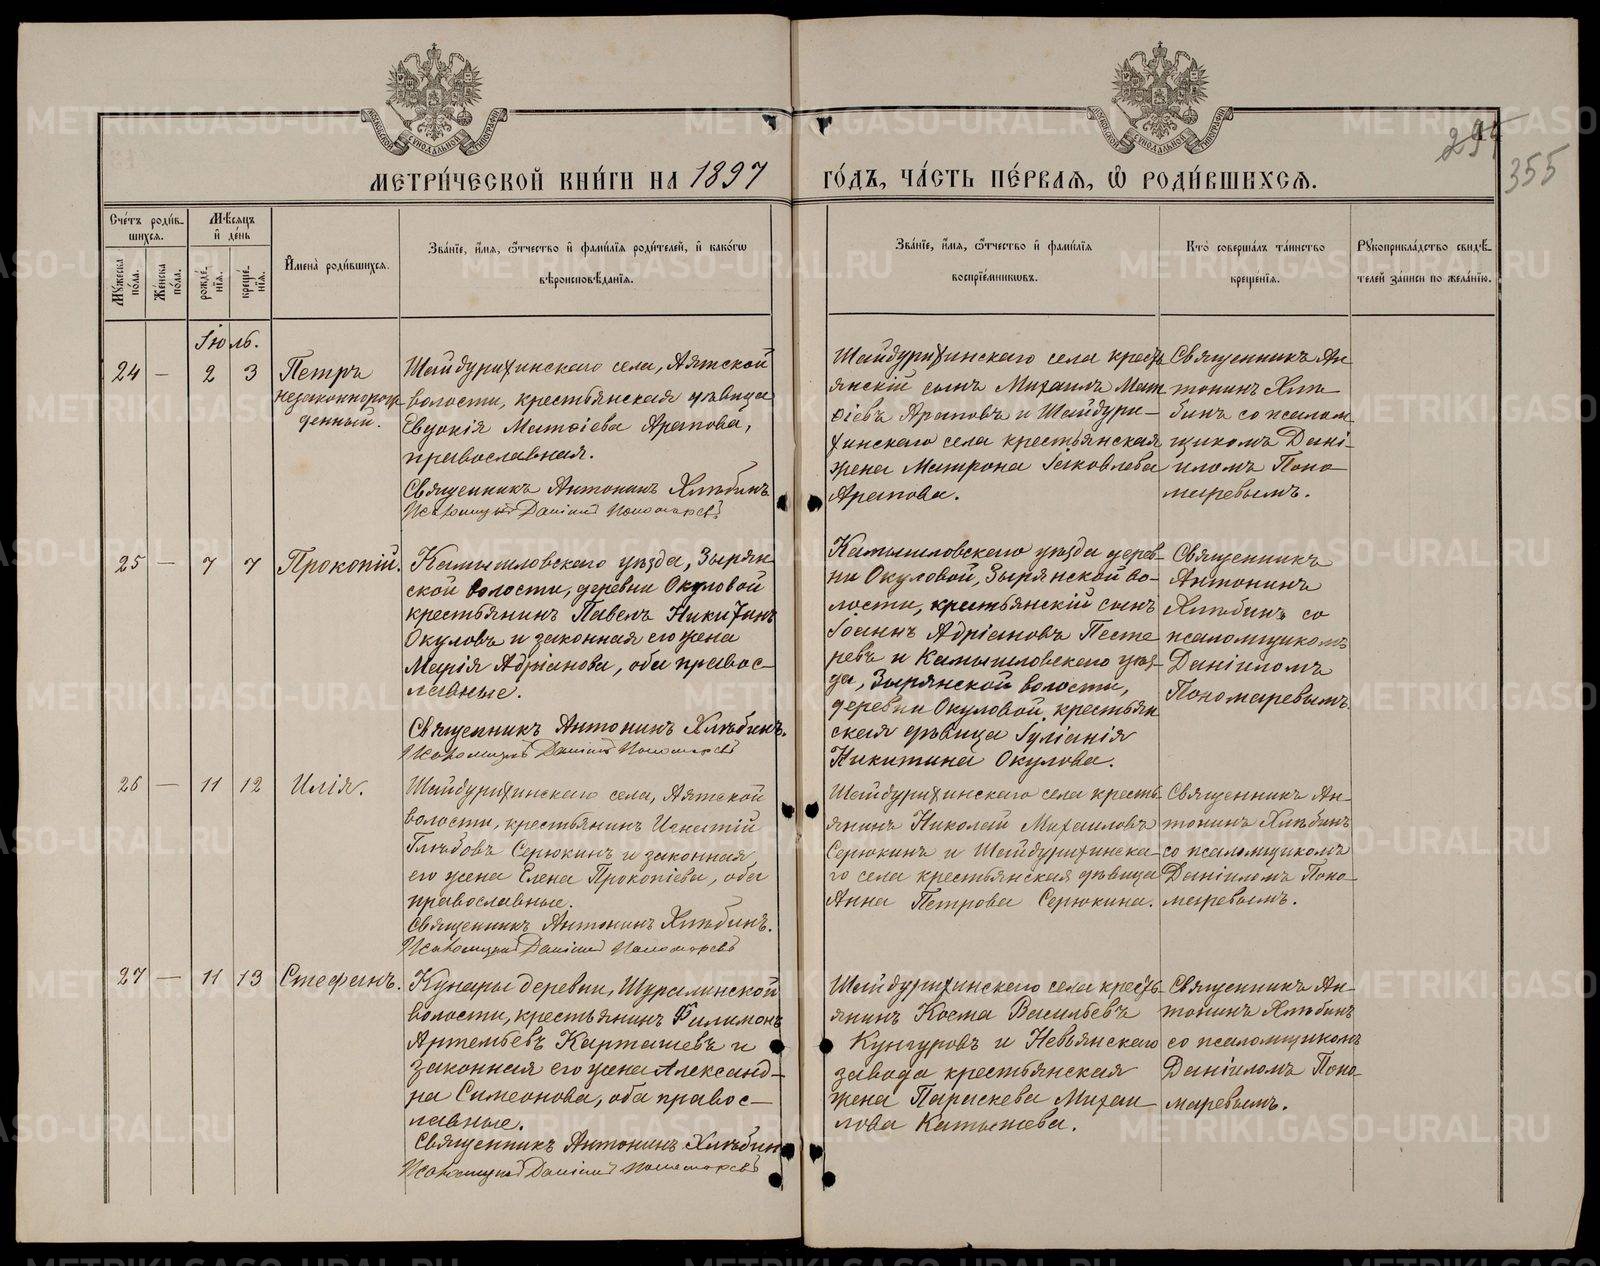 МЕТРИ́ЧЕСКОЙ КНИ́ГИ НА 1897
ГО́ДЪ, ЧА́СТЬ ПЕ́РВАЯ, Ѿ РОДИ́ВШИХСЯ.
295
355
Сче́тъ роди́в-
шихся.
Мѣсяцъ
и день
Мꙋжеска по́ла.
Же́нска по́ла.
рожде́-
нїя.
креще́-
нїя.
Имена̀ роди́вшихся.
Зва́нїе, и́мя, ѻ҆́тчество и҆ фами́лїя роди́телей, и҆ како́гѡ
вѣроисповѣ́данїя.
Зва́нїе, и́мя, ѻ҆́тчество и҆ фами́лїя
воспрїе́мникѡвъ.
Кто̀ соверша́лъ та́инство
креще́нїя.
Рꙋкоприкла́дство свидѣ́-
телей за́писи по жела́нїю.
Іюль.
24 — 2 3
Петръ
незаконнорож-
денный.
Шайдурихинскаго села, Аятской
волости, крестьянская дѣвица
Евдокія Матѳіева Арапова,
православная.
Священникъ Антонинъ Хлѣбинъ
Псаломщикъ Даніилъ Пономаревъ
Шайдурихинскаго села кресть
янскій сынъ Михаилъ Мат
ѳіевъ Араповъ и Шайдури-
хинскаго села крестьянская
жена Матрона Іаковлева
Арапова.
Священникъ Ан
тонинъ Хлѣ
бинъ со псалом
щикомъ Дані-
иломъ Поно-
маревымъ.
25 — 7 7
Прокопій.
Камышловскаго уѣзда, Зырян
ской волости, деревни Окуловой
крестьянинъ Павелъ Никитинъ
Окуловъ и законная его жена
Марія Адріанова, оба правос-
лавные.
Священникъ Антонинъ Хлѣбинъ.
Псаломщикъ Даніилъ Пономаревъ
Камышловскаго уѣзда дерев-
ни Окуловой, Зырянской во-
лости, крестьянскій сынъ
Іоаннъ Адріановъ Песте
ревъ и Камышловскаго уѣз-
да, Зырянской волости,
деревни Окуловой, крестьян
ская дѣвица Іуліанія
Никитина Окулова.
Священникъ
Антонинъ
Хлѣбинъ со
псаломщикомъ
Даніиломъ
Пономаревымъ.
26 — 11 12
Илія.
Шайдурихинскаго села, Аятской
волости, крестьянинъ Игнатій
Глѣбовъ Серюкинъ и законная
его жена Елена Прокопіева, оба
православные.
Священникъ Антонинъ Хлѣбинъ.
Псаломщикъ Даніилъ Пономаревъ
Шайдурихинскаго села кресть-
янинъ Николай Михаиловъ
Серюкинъ и Шайдурихинска-
го села крестьянская дѣвица
Анна Петрова Серюкина.
Священникъ Ан-
тонинъ Хлѣбинъ
со псаломщикомъ
Даніиломъ Поно-
маревымъ.
27 — 11 13
Стефанъ.
Кунары деревни, Шуралинской
волости, крестьянинъ Филимонъ
Артемьевъ Карташевъ и
законная его жена Александ-
ра Симеонова, оба правос-
лавные.
Священникъ Антонинъ Хлѣбин
Псаломщикъ Даніилъ Пономаревъ
Шайдурихинскаго села кресть-
янинъ Косма Васильевъ
Кунгуровъ и Невьянскаго
завода крестьянская
жена Параскева Михаи
лова Катышева.
Священникъ Ан-
тонинъ Хлѣбинъ
со псаломщикомъ
Даніиломъ Поно-
маревымъ.
METRIKI.GASO-URAL.RU